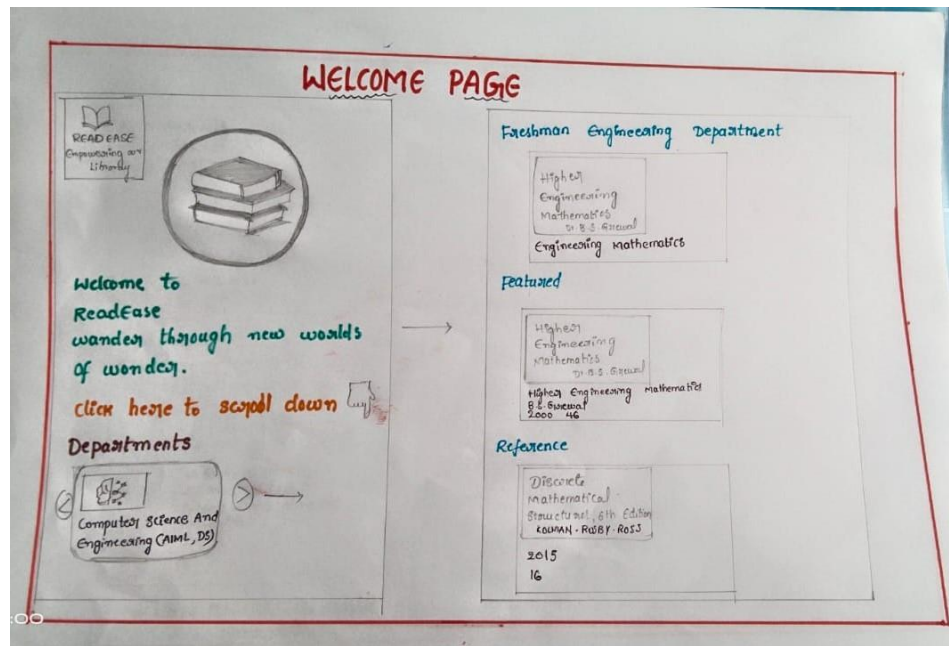 WELCOME PAGE
READ EASE
Empowering our
Library
Welcome to
ReadEase
wander through new worlds
of wonder.
Click here to scroll down
Departments
<
>
Computer Science And
Engineering (AIML, DS)
Freshman Engineering Department
Higher
Engineering
Mathematics
Dr. B.S. Grewal
Engineering Mathematics
Featured
Higher
Engineering
Mathematics
Dr. B.S. Grewal
Higher Engineering Mathematics
B.S. Grewal
2000 46
Reference
Discrete
Mathematical
Structures, 6th Edition
KOLMAN · BUSBY · ROSS
2015
16
:00